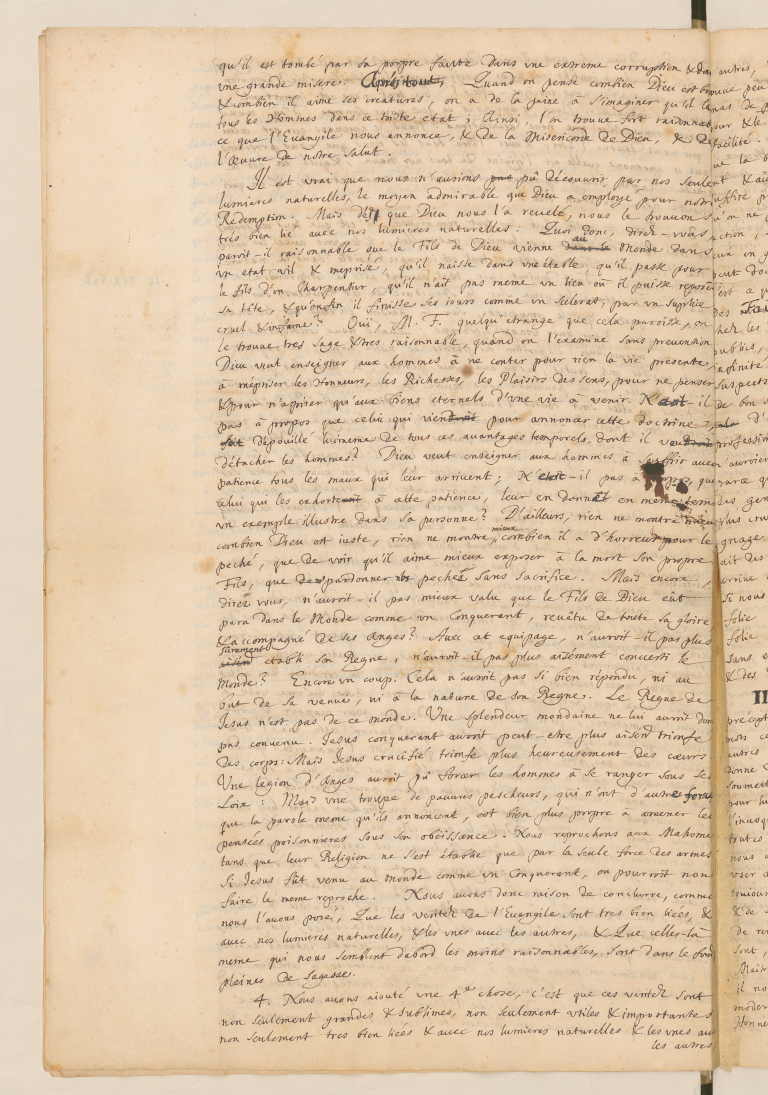 qu'il est tombé par sa propre faute dans vne extreme corruption & dans
vne grande misere. Apres tout, Quand on pense combien Dieu est bon
& combien il aime ses creatures, on a de la peine à s'imaginer qu'il laisse
tous les Hommes dans ce triste etat ; Ainsi, l'on trouve fort raisonnable
ce que l'Euangile nous annonce, & de la Misericorde de Dieu, & de
l'œuure de notre Salut.
Il est vrai que nous n'aurions pas pû decouurir, par nos seules
lumieres naturelles, le moyen admirable que Dieu a employé pour notre
Redemption. Mais dés que Dieu nous l'a reuelé, nous le trouuons
très bien lié auec nos lumieres naturelles : Quoi donc, direz-vous,
paroit-il raisonnable que le Fils de Dieu vienne au Monde dans
vn etat vil & meprisé, qu'il naisse dans vne étable, qu'il passe pour
le fils d'un Charpentier, qu'il n'ait pas meme vn lieu où il puisse reposer
sa tête, & qu'enfin il finisse ses iours comme vn scelerat, par vn suplice
cruel & infame ? Oui, M. F. quelqu'etrange que cela paroisse, on
le trouue tres sage & tres raisonnable, quand on l'examine sans preuention
Dieu veut enseigner aux hommes à ne conter pour rien la vie presente,
à mépriser les Honneurs, les Richesses, les Plaisirs des sens, pour ne penser
& pour n'aspirer qu'aux biens eternels d'vne vie à venir. N'est-il
pas à propos que celui qui vient pour annoncer cette doctrine,
soit depouillé luimeme de tous ces auantages temporels, dont il veut
détacher les hommes ? Dieu veut enseigner aux hommes à souffrir auec
patience tous les maux qui leur arriuent ; N'est-il pas à propos que
celui qui les exhorte à cette patience, leur en donne en meme tems
vn exemple illustre dans sa personne ? D'ailleurs, rien ne montre mieux
combien Dieu est iuste, rien ne montre mieux combien il a d'horreur pour le
peché, que de voir qu'il aime mieux exposer à la mort son propre
Fils, que de pardonner nos pechez sans sacrifice. Mais encore
direz vous, n'auroit-il pas mieux valu que le Fils de Dieu eût
paru dans le Monde comme vn Conquerant, reuêtu de toute sa gloire
& accompagné de ses Anges ? Auec cet equipage, n'auroit-il pas plus
surement etabli son Regne, n'auroit-il pas plus aisément conuerti le
Monde ? Encore vn coup. Cela n'auroit pas si bien répondu, ni au
but de sa venuë, ni à la nature de son Regne. Le Regne de
Jesus n'est pas de ce monde. Vne splendeur mondaine ne lui auroit donc
pas conuenu. Jesus conquerant auroit peut-etre plus aisém.t triomfé
des corps : Mais Jesus crucifié triomfe plus heureusement des cœurs
Vne legion d'Anges auroit pû forcer les hommes à se ranger sous ses
Loix : Mais vne troupe de pauures pescheurs, qui n'ont d'autre force
que la parole meme qu'ils annoncent, est bien plus propre à amener les
pensées prisonnieres sous son obeissance. Nous reprochons aux Mahome
tans que leur Religion ne s'est établie que par la seule force des armes
Si Jesus fût venu au monde comme vn Conquerant, on pourroit nous
faire le meme reproche. Nous auons donc raison de conclurre, comme
nous l'auons posé, Que les veritez de l'Euangile sont tres bien liées, &
auec nos lumieres naturelles, & les vnes auec les autres, & Que celles-là
meme qui nous semblent dabord les moins raisonnables, sont dans le fond
pleines de Sagesse.
4. Nous auons aiouté vne 4.e chose, c'est que ces veritez sont
non seulement grandes & sublimes, non seulement vtiles & importantes
non seulement tres bien liées & auec nos lumieres naturelles & les vnes auec
les autres